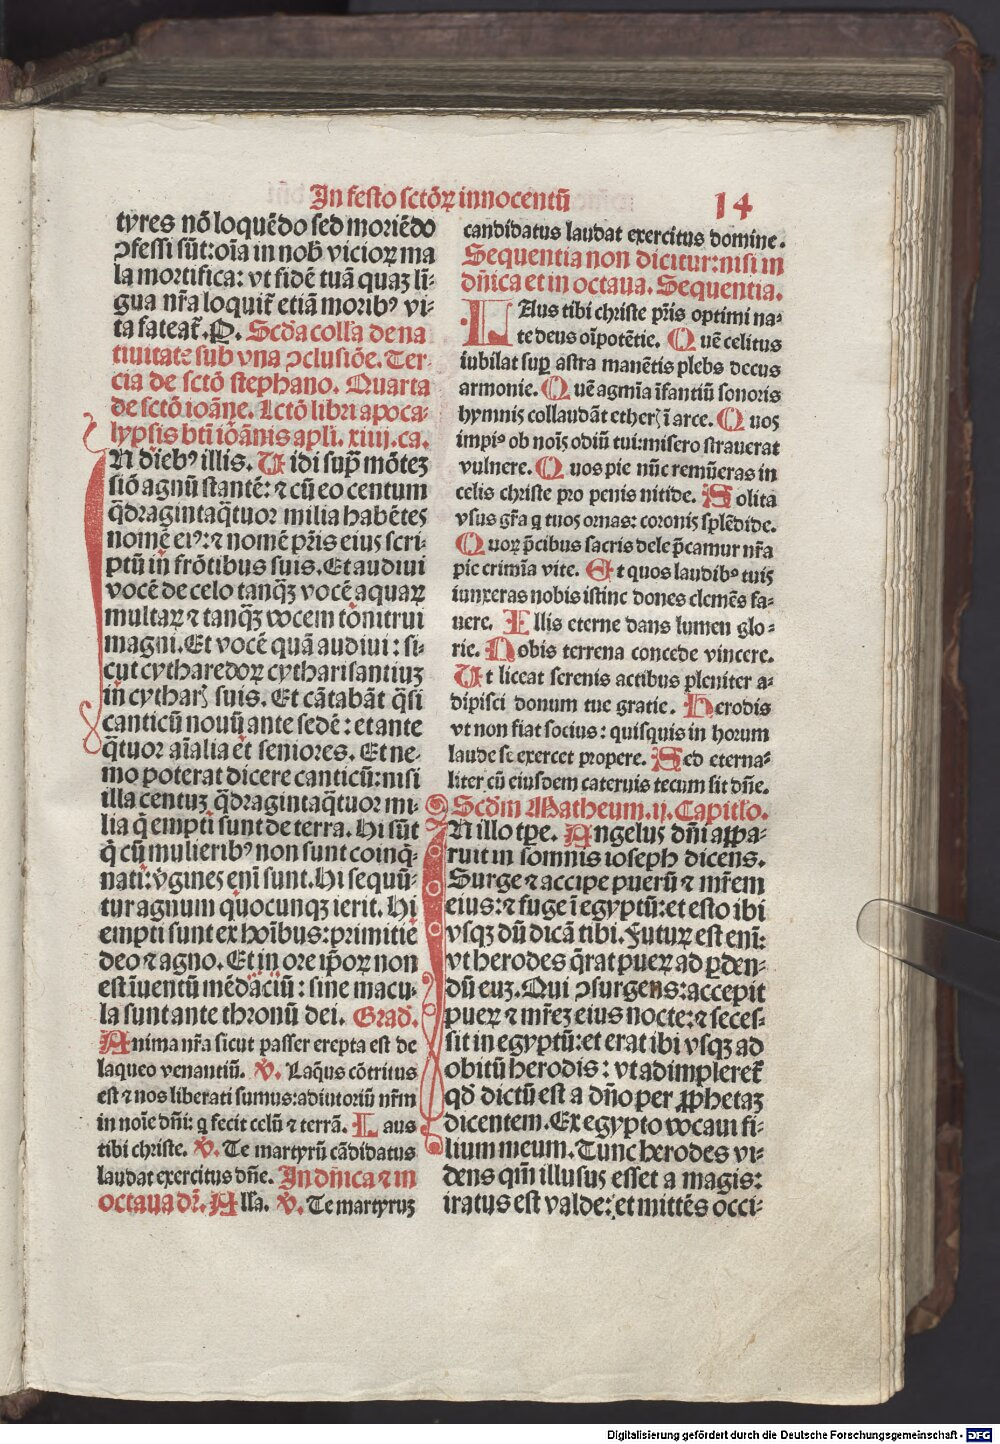 In festo sctõꝝ innocentũ 14
tyres nõ loquẽdo sed moriẽdo
ꝯfessi sũt: oĩa in nob̃ vicioꝝ ma
la mortifica: vt fidẽ tuã quaʒ lĩ-
gua nr̃a loquit᷑ etiã moribꝰ vi-
ta fateat᷑. P. Scd̃a colla de na
tiuitate sub vna ꝯclusiõe. Ter-
cia de sctõ stephano. Quarta
de sctõ ioãne. Lctõ libri apoca-
lypsis bt̃i iõãnis apli. xiiij. ca.
IN dieb̾ illis. Uidi sup̃ mõteʒ
siõ agnũ stantẽ: ⁊ cũ eo centum
q̃dragintaq̃tuor milia habẽtes
nomẽ eiꝰ: ⁊ nomẽ pr̃is eius scri-
ptũ in frõtibus suis. Et audiui
vocẽ de celo tanq̃ʒ vocẽ aquaꝝ
multaꝝ ⁊ tanq̃ʒ vocem tonitrui
magni. Et vocẽ quã audiui: si-
cut cytharedoꝝ cytharisantiuʒ
in cythar̃ suis. Et cãtabãt q̃si
canticũ nouũ ante sedẽ: et ante
q̃tuor aĩalia et seniores. Et ne-
mo poterat dicere canticũ: nisi
illa centuʒ q̃dragintaq̃tuor mi-
lia q̃ empti sunt de terra. Hi sũt
q̃ cũ mulieribꝰ non sunt coinq̃-
nati: v̾gines enĩ sunt. Hi sequũ-
tur agnum quocunqʒ ierit. Hi
empti sunt ex hoĩbus: primitiẽ
deo ⁊ agno. Et in ore ip̃oꝝ non
est ĩuentũ mẽdaciũ: sine macu-
la sunt ante thronũ dei. Grad̃.
Anima nr̃a sicut passer erepta est de
laqueo venantiũ. ℣. Laq̃us cõtritus
est ⁊ nos liberati sumus: adiutoriũ nr̃m
in noĩe dñi: q̃ fecit celũ ⁊ terrã. Laus
tibi christe. ℣. Te martyrũ cãdidatus
laudat exercitus dñe. In dñica ⁊ in
octaua dr̃. Alla. ℣. Te martyruʒ
candidatus laudat exercitus domine.
Sequentia non dicitur: nisi in
dñica et in octaua. Sequentia.
LAus tibi christe pr̃is optimi na-
te deus oĩpotẽtie. Quẽ celitus
iubilat sup̃ astra manẽtis plebs decus
armonie. Quẽ agmĩa ĩfantiũ sonoris
hymnis collaudãt ether̃ ĩ arce. Quos
impiꝰ ob noĩs odiũ tui: misero strauerat
vulnere. Quos pie nũc remũeras in
celis christe pro penis nitide. Solita
vsus gr̃a q̃ tuos ornas: coronis splẽdide.
Quoꝝ p̃cibus sacris dele p̃camur nr̃a
pie crimĩa vite. Et quos laudibꝰ tuis
iunxeras nobis istinc dones clemẽs fa-
uere. Illis eterne dans lumen glo-
rie. Nobis terrena concede vincere.
Ut liceat serenis actibus pleniter a-
dipisci donum tue gratie. Herodis
vt non fiat socius: quisquis in horum
laude se exercet propere. Sed eterna-
liter cũ eiusdem cateruis tecum sit dñe.
Scd̃m Matheum. ij. Capitl̃o.
IN illo tp̃e. Angelus dñi appa-
ruit in somnis ioseph dicens.
Surge ⁊ accipe puerũ ⁊ mr̃em
eius: ⁊ fuge ĩ egyptũ: et esto ibi
vsqʒ dũ dicã tibi. Futuꝝ est enĩ:
vt herodes q̃rat pueꝝ ad ꝑden-
dũ euʒ. Qui ꝯsurgens: accepit
pueꝝ ⁊ mr̃eʒ eius nocte: ⁊ seces-
sit in egyptũ: et erat ibi vsqʒ ad
obitũ herodis: vt adimpleret᷑
qd̃ dictũ est a dño per ꝓphetaʒ
dicentem. Ex egypto vocaui fi-
lium meum. Tunc herodes vi-
dens qm̃ illusus esset a magis:
iratus est valde: et mittẽs occi-
Digitalisierung gefördert durch die Deutsche Forschungsgemeinschaft - DFG